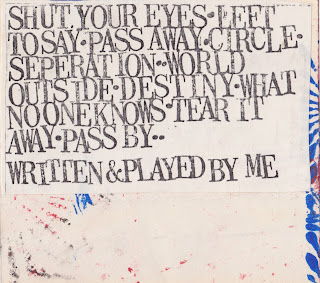 SHUT YOUR EYES·LEFT
TO SAY·PASS AWAY·CIRCLE·
SEPERATION··WORLD
OUTSIDE·DESTINY·WHAT
NO ONE KNOWS·TEAR IT
AWAY·PASS BY··
WRITTEN&PLAYED BY ME